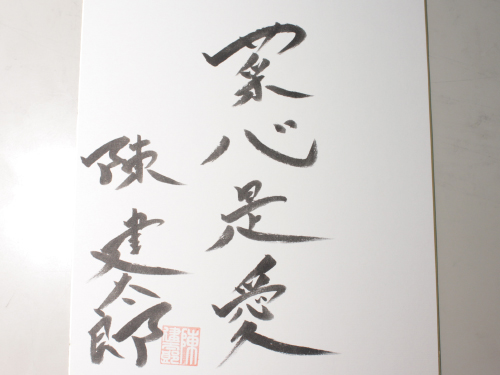 菜心是愛
陳建太郎